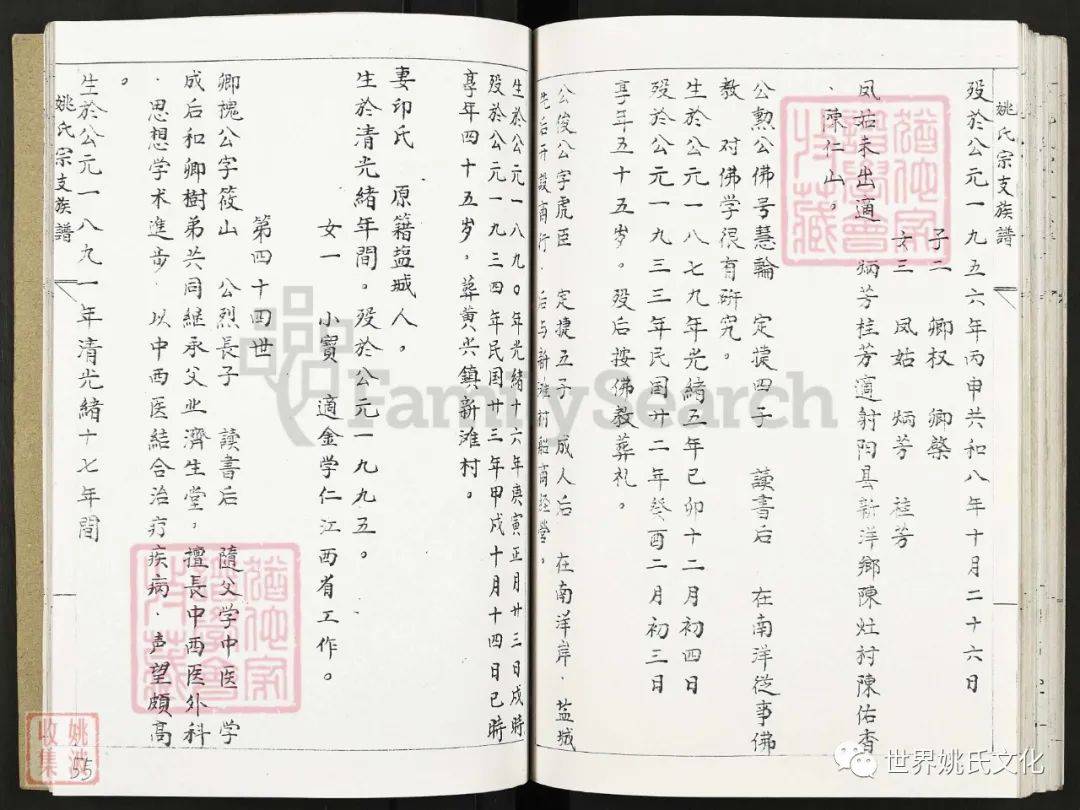 姚氏宗支族譜
殁於公元一九五六年丙申共和八年十月二十六日
子二 卿权 卿榮
女三 凤姑 炳芳 桂芳
凤姑未出適 炳芳桂芳適射阳县新洋鄉陳灶村陳佑香
．陳仁山。
公勲公佛号慧輪 定捷四子 讀書后 在南洋從事佛
教 对佛学很有研究。
生於公元一八七九年光緒五年己卯十二月初四日
殁於公元一九三三年民国廿二年癸酉二月初三日
享年五十五岁。殁后按佛教葬礼。
公俊公字虎臣 定捷五子 成人后 在南洋岸．盐城
先后开設商行．后与新滩村船商经营。
生於公元一八九〇年光緒十六年庚寅正月廿三日戌時
殁於公元一九三四年民国廿三年甲戌十月十四日巳時
享年四十五岁．葬黄尖鎮新滩村。
妻印氏 原籍盐城人．
生於清光緒年間。殁於公元一九九五。
女一 小寶 適金学仁江西省工作。
第四十四世
卿槐公字筱山 公烈長子 讀書后 隨父学中医 学
成后和卿樹弟共同继承父业濟生堂．擅長中西医外科
．思想学术進步．以中西医結合治疗疾病．声望頗高
。
生於公元一八九一年清光緒十七年間
姚氏宗支族譜
55
FamilySearch
世界姚氏文化